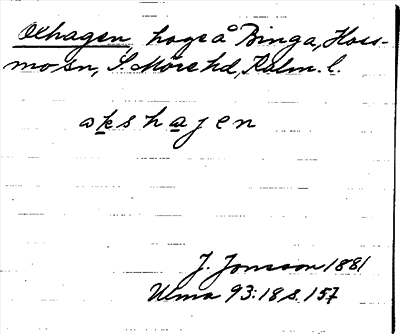 Oxhagen, hage å Binga, Hoss-
mo sn, S. Möre hd, Kalm. l.
akshagen
J. Jonsson 1881
Ulma 93:18 s. 157